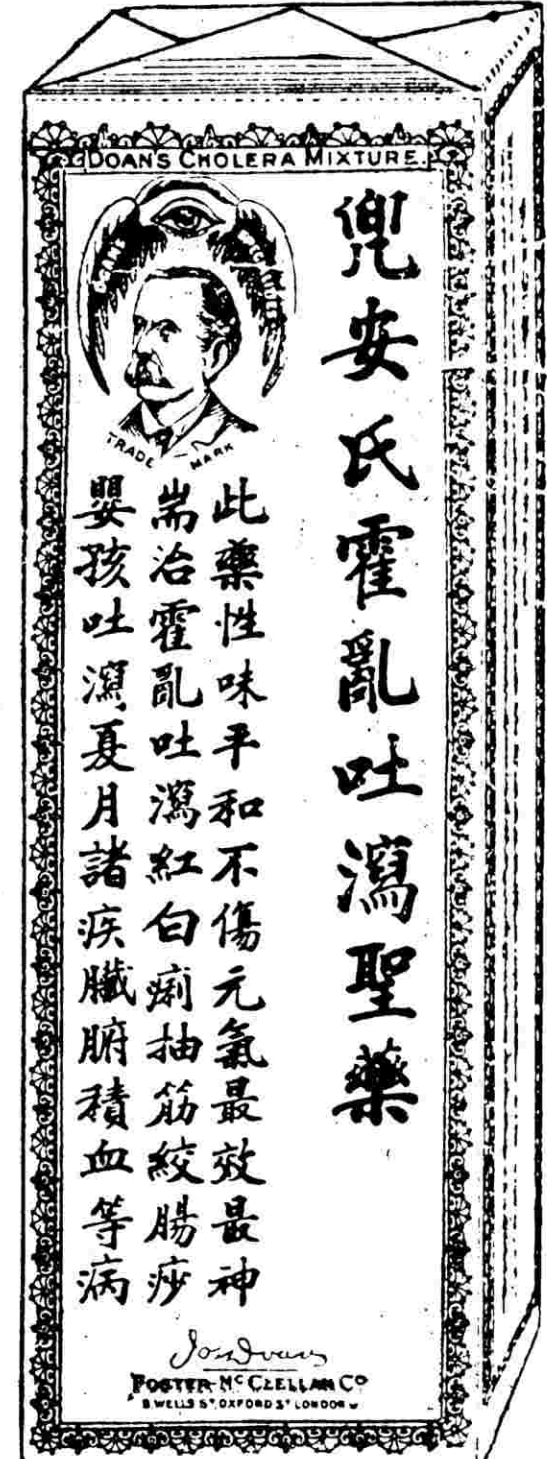 DOAN'S CHOLERA MIXTURE.
兜安氏霍亂吐瀉聖藥
TRADE MARK
此藥性味平和不傷元氣最效最神
耑治霍亂吐瀉紅白痢抽筋絞腸痧
嬰孩吐瀉夏月諸疾臟腑積血等病
Jas Doan
FOSTER-McCLELLAN Co
8, WELLS ST, OXFORD ST LONDON W